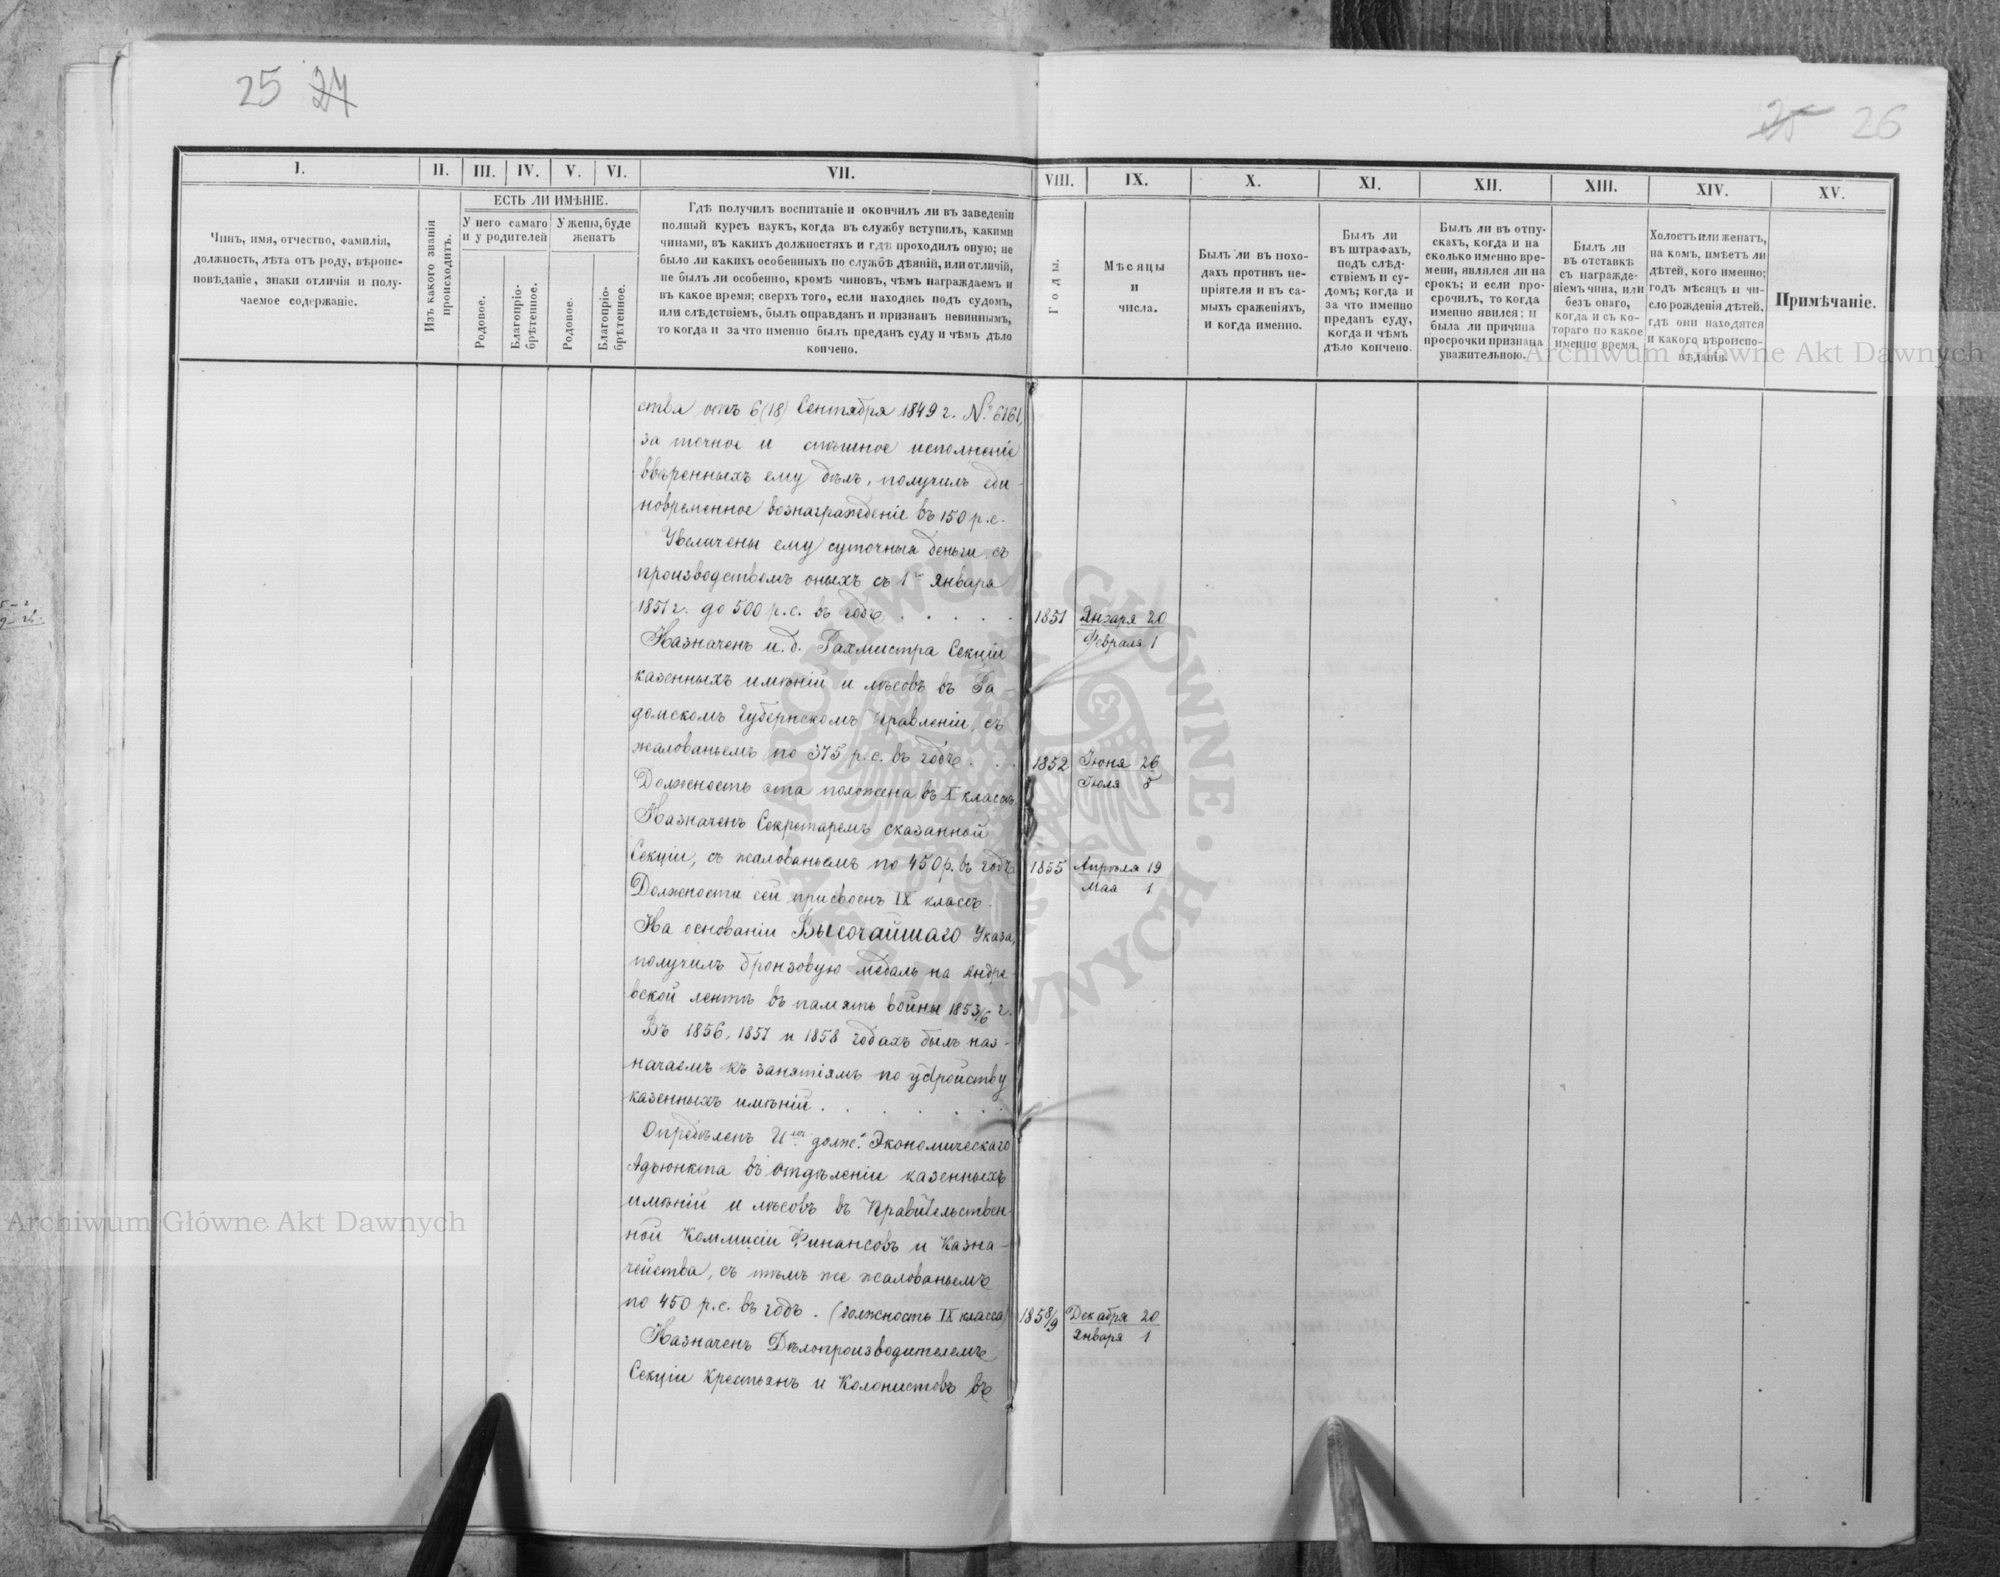 25 24
25 26
I.
II.
III.
IV.
V.
VI.
VII.
VIII.
IX.
X.
XI.
XII.
XIII.
XIV.
XV.
Чинъ, имя, отчество, фамилія,
должность, лѣта отъ роду, вѣроис-
повѣданіе, знаки отличія и полу-
чаемое содержаніе.
Изъ какого званія
происходитъ.
ЕСТЬ ЛИ ИМѢНІЕ.
У него самаго
и у родителей
У жены, буде
женатъ
Родовое.
Благопріо-
брѣтенное.
Родовое.
Благопріо-
брѣтенное.
Гдѣ получилъ воспитаніе и окончилъ ли въ заведеніи
полный курсъ наукъ, когда въ службу вступилъ, какими
чинами, въ какихъ должностяхъ и гдѣ проходилъ оную; не
было ли какихъ особенныхъ по службѣ дѣяній, или отличій,
не былъ ли особенно, кромѣ чиновъ, чѣмъ награждаемъ и
въ какое время; сверхъ того, если находясь подъ судомъ,
или слѣдствіемъ, былъ оправданъ и признанъ невиннымъ,
то когда и за что именно былъ преданъ суду и чѣмъ дѣло
кончено.
Годы.
Мѣсяцы
и
числа.
Былъ ли въ похо-
дахъ противъ не-
пріятеля и въ са-
мыхъ сраженіяхъ,
и когда именно.
Былъ ли
въ штрафахъ,
подъ слѣд-
ствіемъ и су-
домъ; когда и
за что именно
преданъ суду,
когда и чѣмъ
дѣло кончено.
Былъ ли въ отпу-
скахъ, когда и на
сколько именно вре-
мени, являлся ли на
срокъ; и если про-
срочилъ, то когда
именно явился; и
была ли причина
просрочки признана
уважительною.
Былъ ли
въ отставкѣ
съ награжде-
ніемъ чина, или
безъ онаго,
когда и съ ко-
тораго по какое
именно время.
Холостъ или женатъ,
на комъ, имѣетъ ли
дѣтей, кого именно;
годъ мѣсяцъ и чи-
сло рожденія дѣтей,
гдѣ они находятся
и какого вѣроиспо-
вѣданія.
Примѣчаніе.
ства отъ 6(18) Сентября 1849 г. № 6161,
за точное и спѣшное исполненіе
ввѣренныхъ ему дѣлъ, получилъ еди-
новременное вознагражденіе въ 150 р.с.
Увеличены ему суточныя деньги, съ
производствомъ оныхъ съ 1го Января
1851 г. до 500 р.с. въ годъ . . . . .
1851 Января 20
Февраля 1
Назначенъ и.д. Рахмистра Секціи
казенныхъ имѣній и лѣсовъ въ Ра-
домскомъ Губернскомъ Правленіи, съ
жалованьемъ по 375 р.с. въ годъ . . .
1852 Іюня 26
Іюля 8
Должность эта положена въ X классѣ.
Назначенъ Секретаремъ сказанной
Секціи, съ жалованьемъ по 450 р. въ годъ
1855 Апрѣля 19
Мая 1
Должности сей присвоенъ IX классъ.
На основаніи Высочайшаго Указа,
получилъ бронзовую медаль на Андре-
евской лентѣ въ память войны 1853/6 г.
Въ 1856, 1857 и 1858 годахъ былъ наз-
начаемъ къ занятіямъ по устройству
казенныхъ имѣній . . . . . .
Опредѣленъ И. долж. Экономическаго
Адъюнкта въ отдѣленіи казенныхъ
имѣній и лѣсовъ въ Правительствен-
ной Коммисіи Финансовъ и Казна-
чейства, съ тѣмъ же жалованьемъ
по 450 р.с. въ годъ. (должность IX класса)
1858/9 Декабря 20
Января 1
Назначенъ Дѣлопроизводителемъ
Секціи Крестьянъ и Колонистовъ въ
Archiwum Główne Akt Dawnych
Archiwum Główne Akt Dawnych
ARCHIWUM GŁÓWNE AKT DAWNYCH